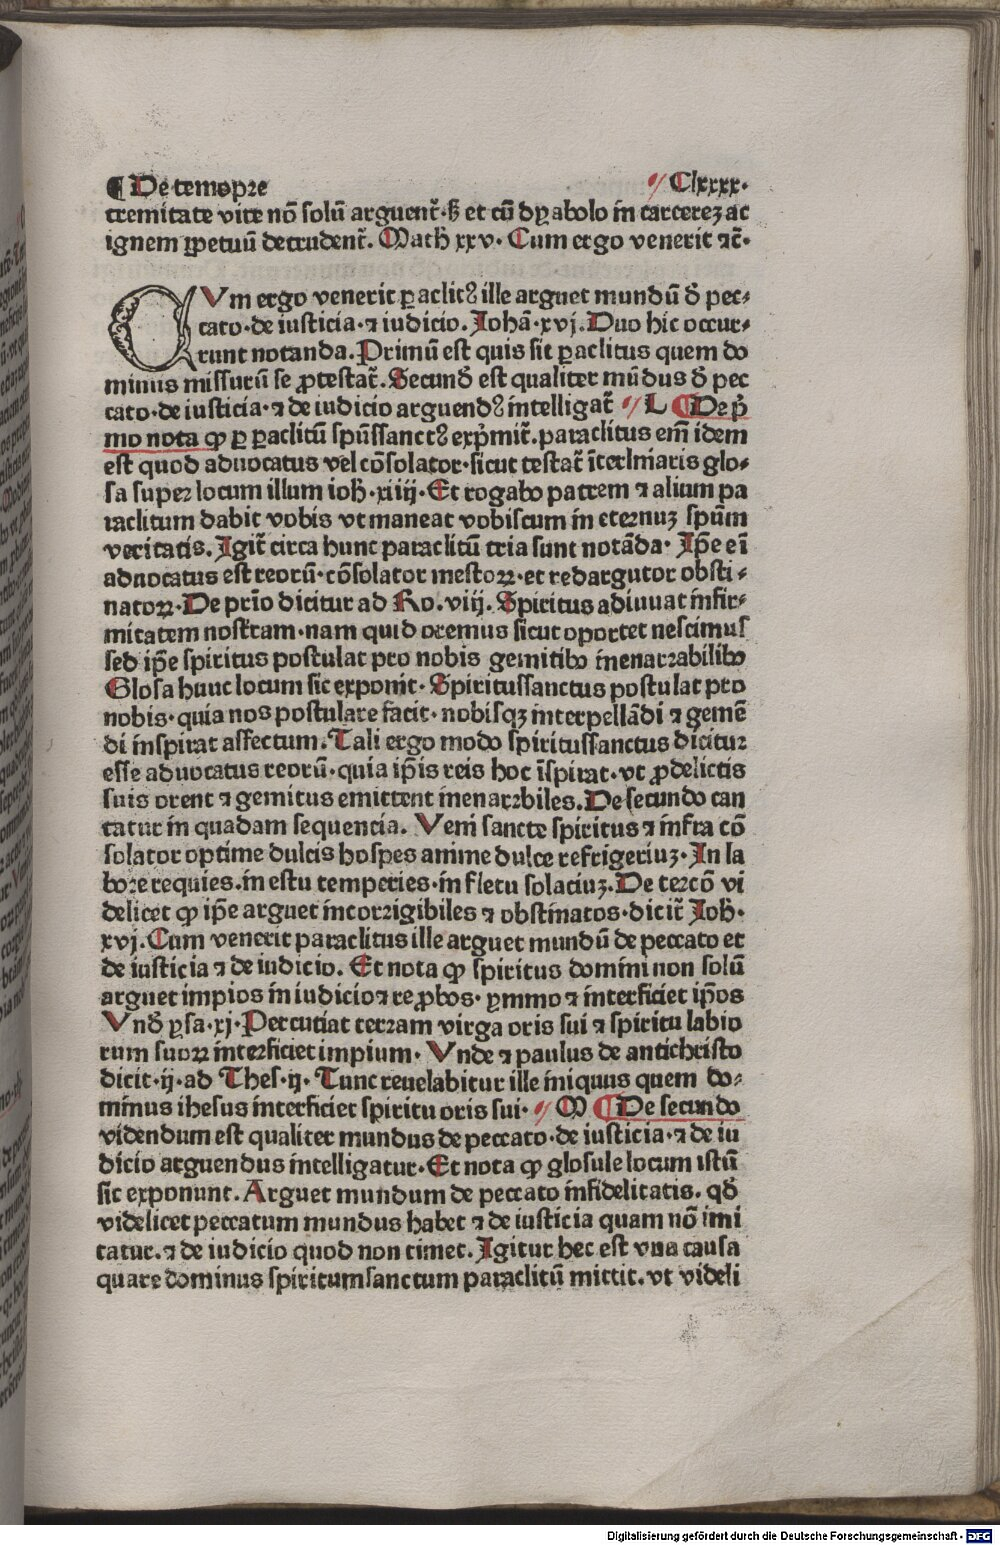 ¶ De temopre Clxxxx.
tremitate vite nō solū arguent᷑.ß et cū dyabolo in carcerez ac
ignem ꝑpetuū detrudent᷑. Math xxv. Cum ergo venerit ⁊c̄.
QVm ergo venerit ꝑaclitꝰ ille arguet mundū đ pec-
cato.de iusticia.⁊ iudicio. Johā.xvj. Duo hic occur-
runt notanda. Primū est quis sit ꝑaclitus quem do
minus missurū se ꝓtestat᷑. Secund̄ est qualiter mūdus đ pec
cato.de iusticia.⁊ de iudicio arguendꝰ intelligat᷑ L ¶ De p̄
mo nota ꝙ ꝑ ꝑaclitū spūssanctꝰ exp̄mit᷑.paraclitus em̄ idem
est quod aduocatus vel cōsolator.sicut testat᷑ īterlniaris glo-
sa super locum illum ioh̄.xiiij. Et rogabo patrem ⁊ alium pa
raclitum dabit vobis vt maneat vobiscum in eternuz spūm
veritatis. Igit᷑ circa hunc paraclitū tria sunt notāda. Ip̄e eī
aduocatus est reorū.cōsolator mestoꝝ.et redargutor obsti-
natoꝝ. De prīo dicitur ad Ro.viij. Spiritus adiuuat infir-
mitatem nostram.nam quid oremus sicut oportet nescimus
sed ip̄e spiritus postulat pro nobis gemitibꝰ inenarrabilibꝰ
Glosa hunc locum sic exponit. Spiritussanctus postulat pro
nobis.quia nos postulare facit.nobisqꝫ interpellādi ⁊ gemē
di inspirat affectum. Tali ergo modo spiritussanctus dicitur
esse aduocatus reorū.quia ip̄is reis hoc īspirat.vt ꝓ delictis
suis orent ⁊ gemitus emittent inenarrbiles. De secundo can
tatur in quadam sequencia. Veni sancte spiritus ⁊ infra cō
solator optime dulcis hospes anime dulce refrigeriuz. In la
bore requies.in estu temperies.in fletu solaciuz. De tercō vi
delicet ꝙ ip̄e arguet incorrigibiles ⁊ obstinatos.dicit᷑ Joh̄.
xvj. Cum venerit paraclitus ille arguet mundū de peccato et
de iusticia ⁊ de iudicio. Et nota ꝙ spiritus domini non solū
arguet impios in iudicio⁊ reꝓbos. ymmo ⁊ interficiet ip̄os
Vnđ ysa.xj. Percutiat terram virga oris sui ⁊ spiritu labio
rum suoꝝ interficiet impium. Vnde ⁊ paulus de antichristo
dicit.ij.ad Thes.ij. Tunc reuelabitur ille iniquus quem do-
minus ihesus interficiet spiritu oris sui. M ¶ De secundo
videndum est qualiter mundus de peccato.de iusticia.⁊ de iu
dicio arguendus intelligatur. Et nota ꝙ glosule locum istū
sic exponunt. Arguet mundum de peccato infidelitatis. qđ
videlicet peccatum mundus habet ⁊ de iusticia quam nō imi
tatur.⁊ de iudicio quod non timet. Igitur hec est vna causa
quare dominus spiritumsanctum paraclitū mittit.vt videli
Digitalisierung gefördert durch die Deutsche Forschungsgemeinschaft - DFG